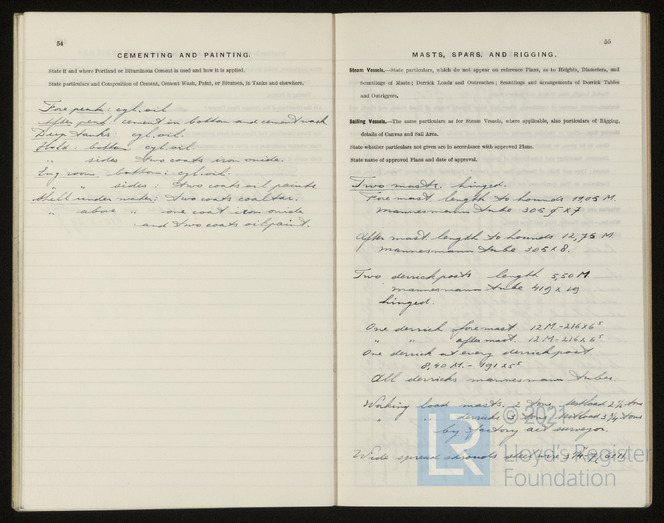 54
CEMENTING AND PAINTING.
State if and where Portland or Bituminous Cement is used and how it is applied.
State particulars and Composition of Cement, Cement Wash, Paint, or Bitumen, in Tanks and elsewhere.
Fore peak: cyl. oil
After peak: cement in bottom and cement wash
Deep tanks: cyl. oil.
Hold: bottom cyl. oil
" sides two coats iron oxide.
Eng. room bottom: cyl. oil.
" " sides: two coats oil paint
Shell under water: two coats coal tar.
" above " one coat iron oxide
and two coats oilpaint.
55
MASTS, SPARS, AND RIGGING.
Steam Vessels.—State particulars, which do not appear on reference Plans, as to Heights, Diameters, and
Scantlings of Masts; Derrick Loads and Outreaches; Scantlings and arrangements of Derrick Tables
and Outriggers.
Sailing Vessels.—The same particulars as for Steam Vessels, where applicable, also particulars of Rigging,
details of Canvas and Sail Area.
State whether particulars not given are in accordance with approved Plans.
State name of approved Plans and date of approval.
Two masts, hinged.
Fore mast length to hounds M.
mannesmann tube 305 x 7
After mast length to hounds 12,75 M.
mannesmann tube 305 x 8.
Two derrick posts length 5,50 M
mannesmann tube 419 x
hinged
One derrick foremast 12 M - 216 x 6⁵
" " after mast 12 M - 216 x 6⁵
One derrick at every derrick post
8,40 M. - 191 x 5⁵
All derricks mannesmann tubes.
Working load masts 2 tons, testload 2½ tons
" " derricks 3 tons, testload 3¾ tons
by factory act surveyor.
Wide spread shrouds steel wire
LR
© 2021
Lloyd's Register
Foundation